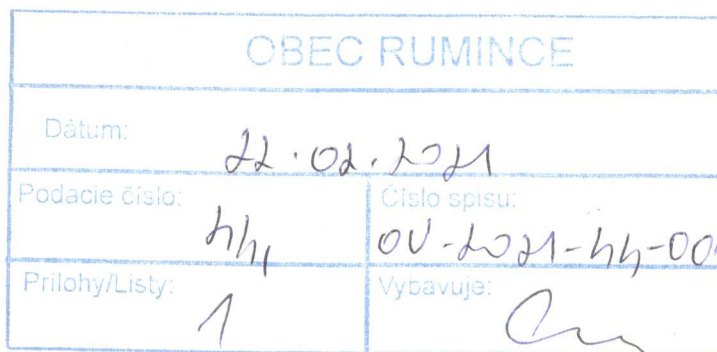 OBEC RUMINCE
Dátum: 22.02.2021
Podacie číslo: 44
Číslo spisu: OU-2021-44-00
Prílohy/Listy: 1
Vybavuje: